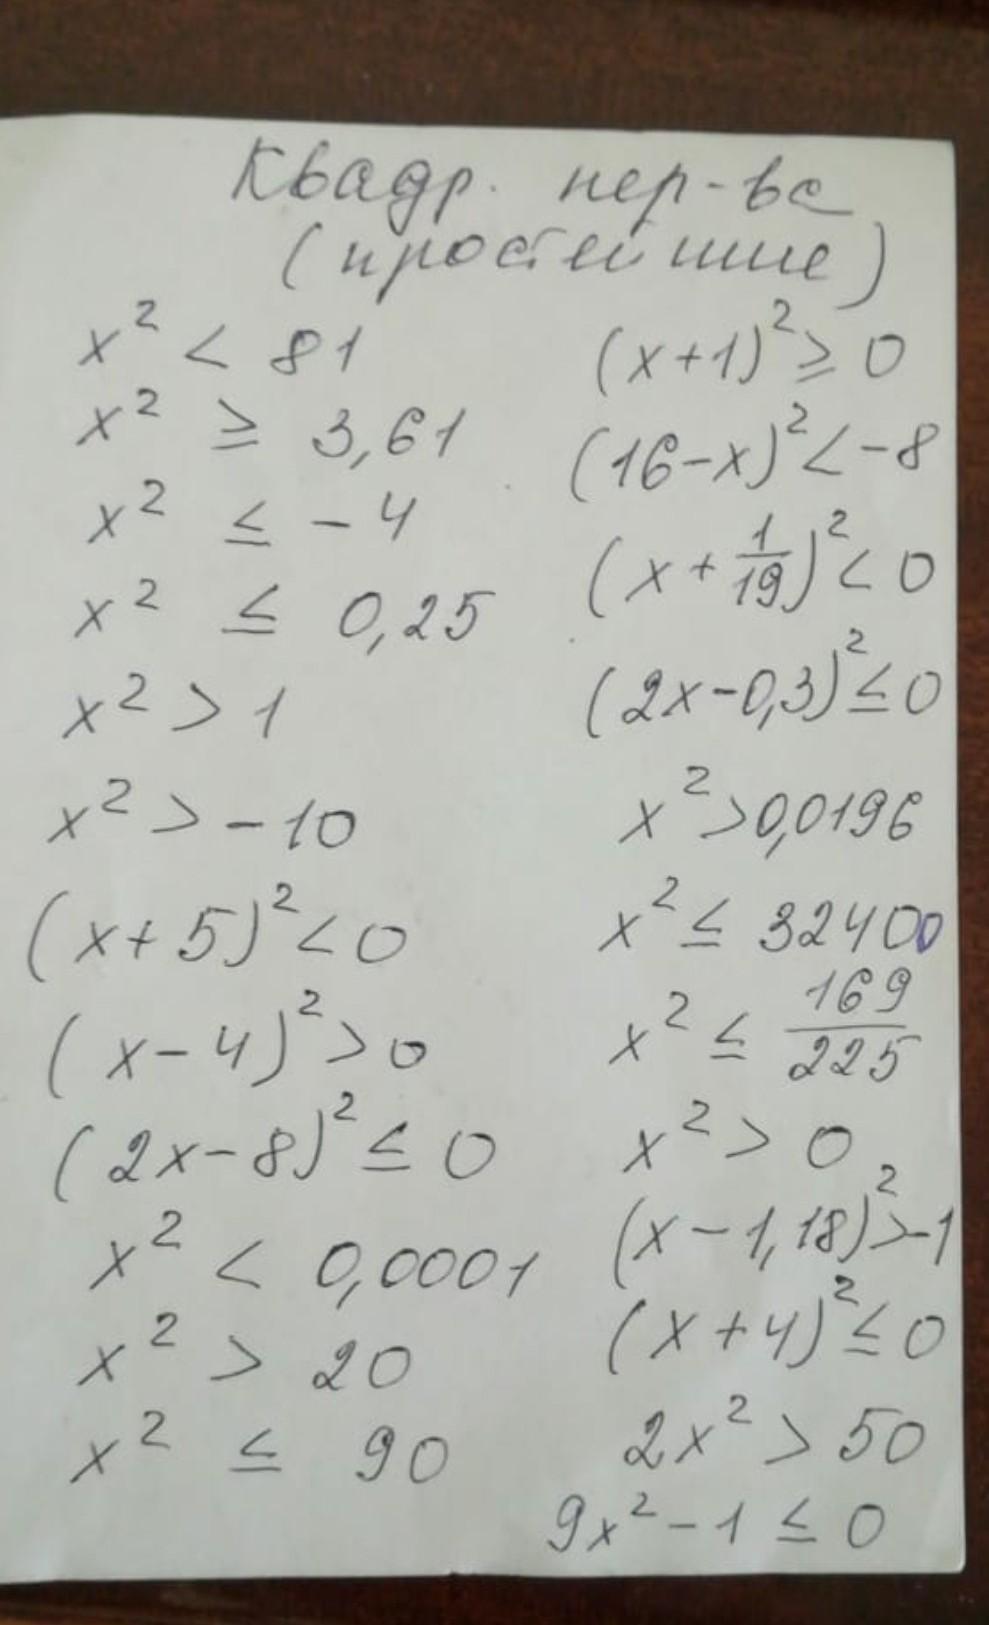 Квадр. нер-ва
(простейшие)
x² < 81
x² ≥ 3,61
x² ≤ -4
x² ≤ 0,25
x² > 1
x² > -10
(x+5)² < 0
(x-4)² > 0
(2x-8)² ≤ 0
x² < 0,0001
x² > 20
x² ≤ 90
(x+1)² ≥ 0
(16-x)² < -8
(x + 1/19)² < 0
(2x-0,3)² ≤ 0
x² > 0,0196
x² ≤ 32400
x² ≤ 169/225
x² > 0
(x-1,18)² > -1
(x+4)² ≤ 0
2x² > 50
9x² - 1 ≤ 0